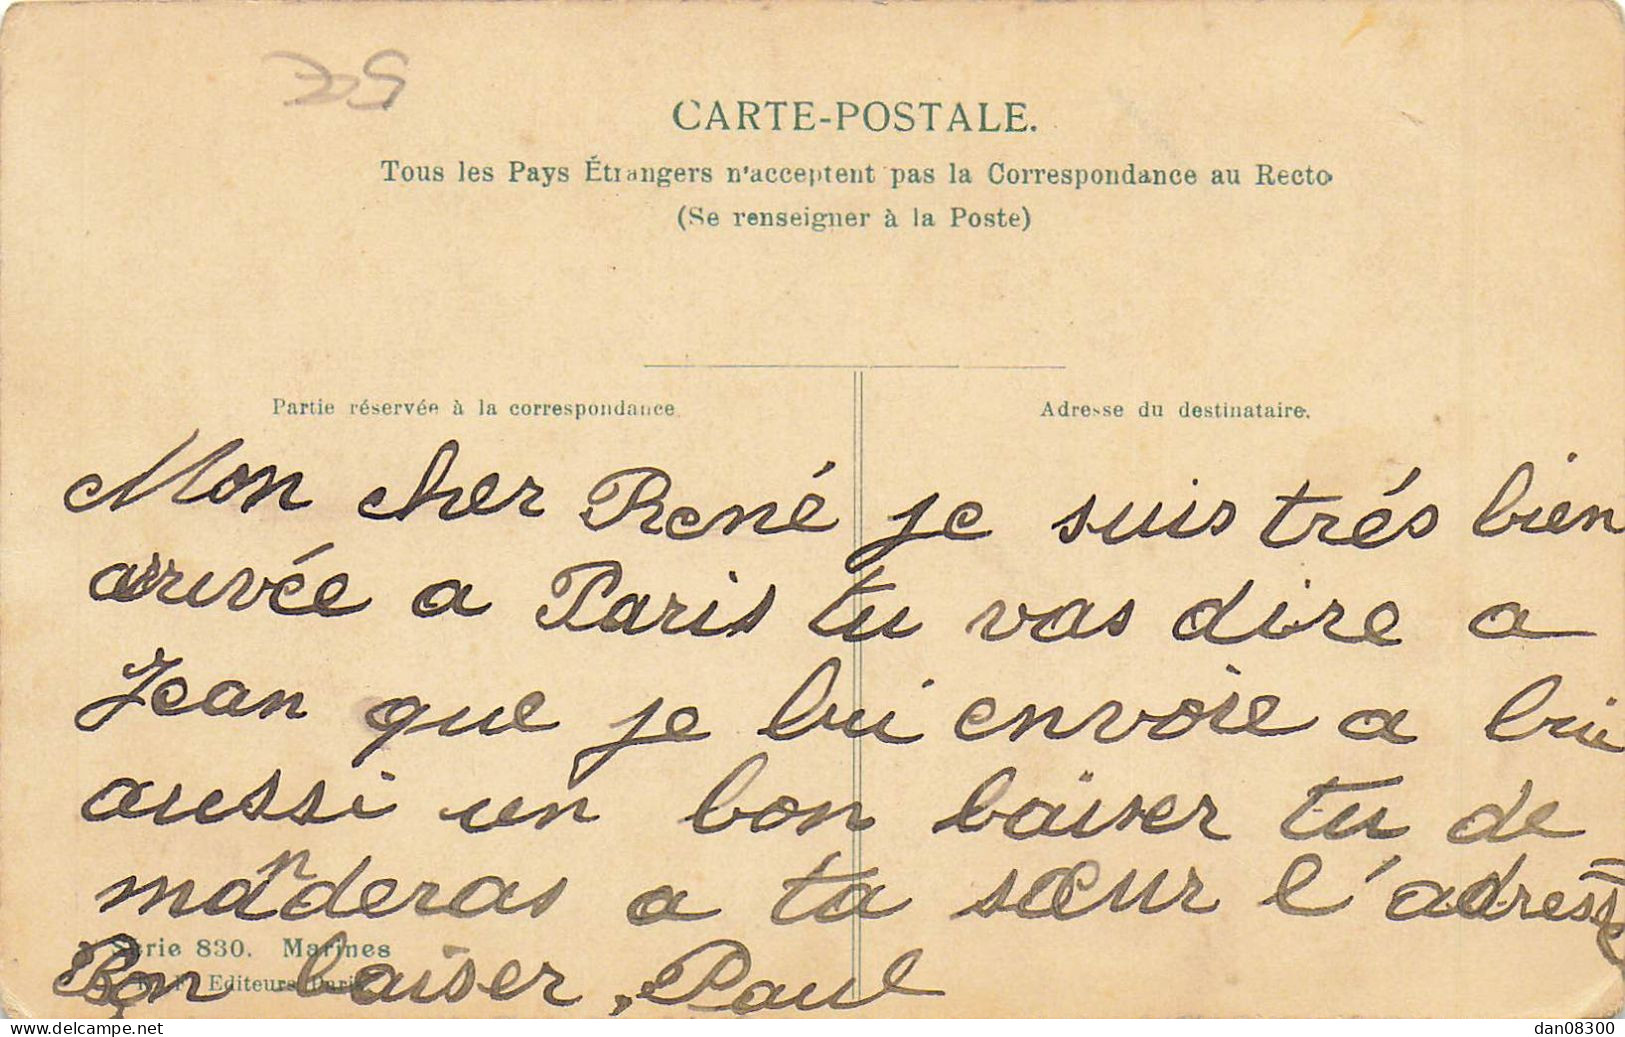 CARTE-POSTALE.
Tous les Pays Étrangers n'acceptent pas la Correspondance au Recto
(Se renseigner à la Poste)
Partie réservée à la correspondance
Adresse du destinataire.
Mon cher René je suis trés bien
arrivée a Paris tu vas dire a
Jean que je lui envoie a lui
aussi un bon baiser tu de
manderas a ta sœur l'adresse
Série 830. Marines
Editeurs Paris
Bon baiser, Paul
delcampe.net
dan08300